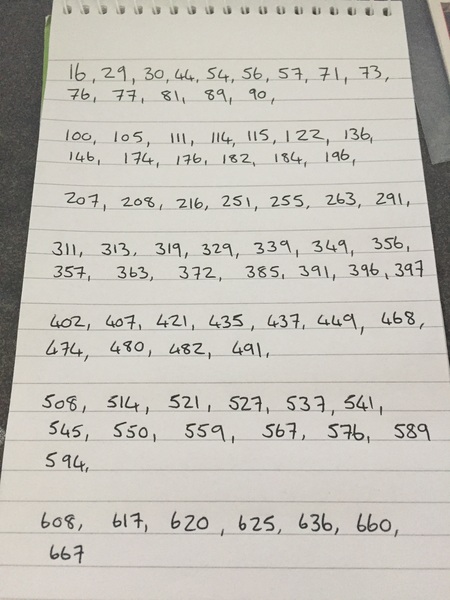 16, 29, 30, 44, 54, 56, 57, 71, 73,
76, 77, 81, 89, 90,
100, 105, 111, 114, 115, 122, 136,
146, 174, 176, 182, 184, 196,
207, 208, 216, 251, 255, 263, 291,
311, 313, 319, 329, 339, 349, 356,
357, 363, 372, 385, 391, 396, 397
402, 407, 421, 435, 437, 449, 468,
474, 480, 482, 491,
508, 514, 521, 527, 537, 541,
545, 550, 559, 567, 576, 589
594,
608, 617, 620, 625, 636, 660,
667